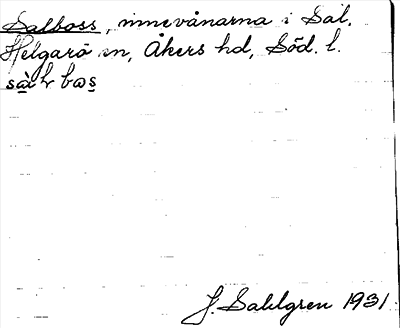 Salboss, innevånarna i Sal,
Helgarö sn, Åkers hd, Söd. l.
J. Sahlgren 1931